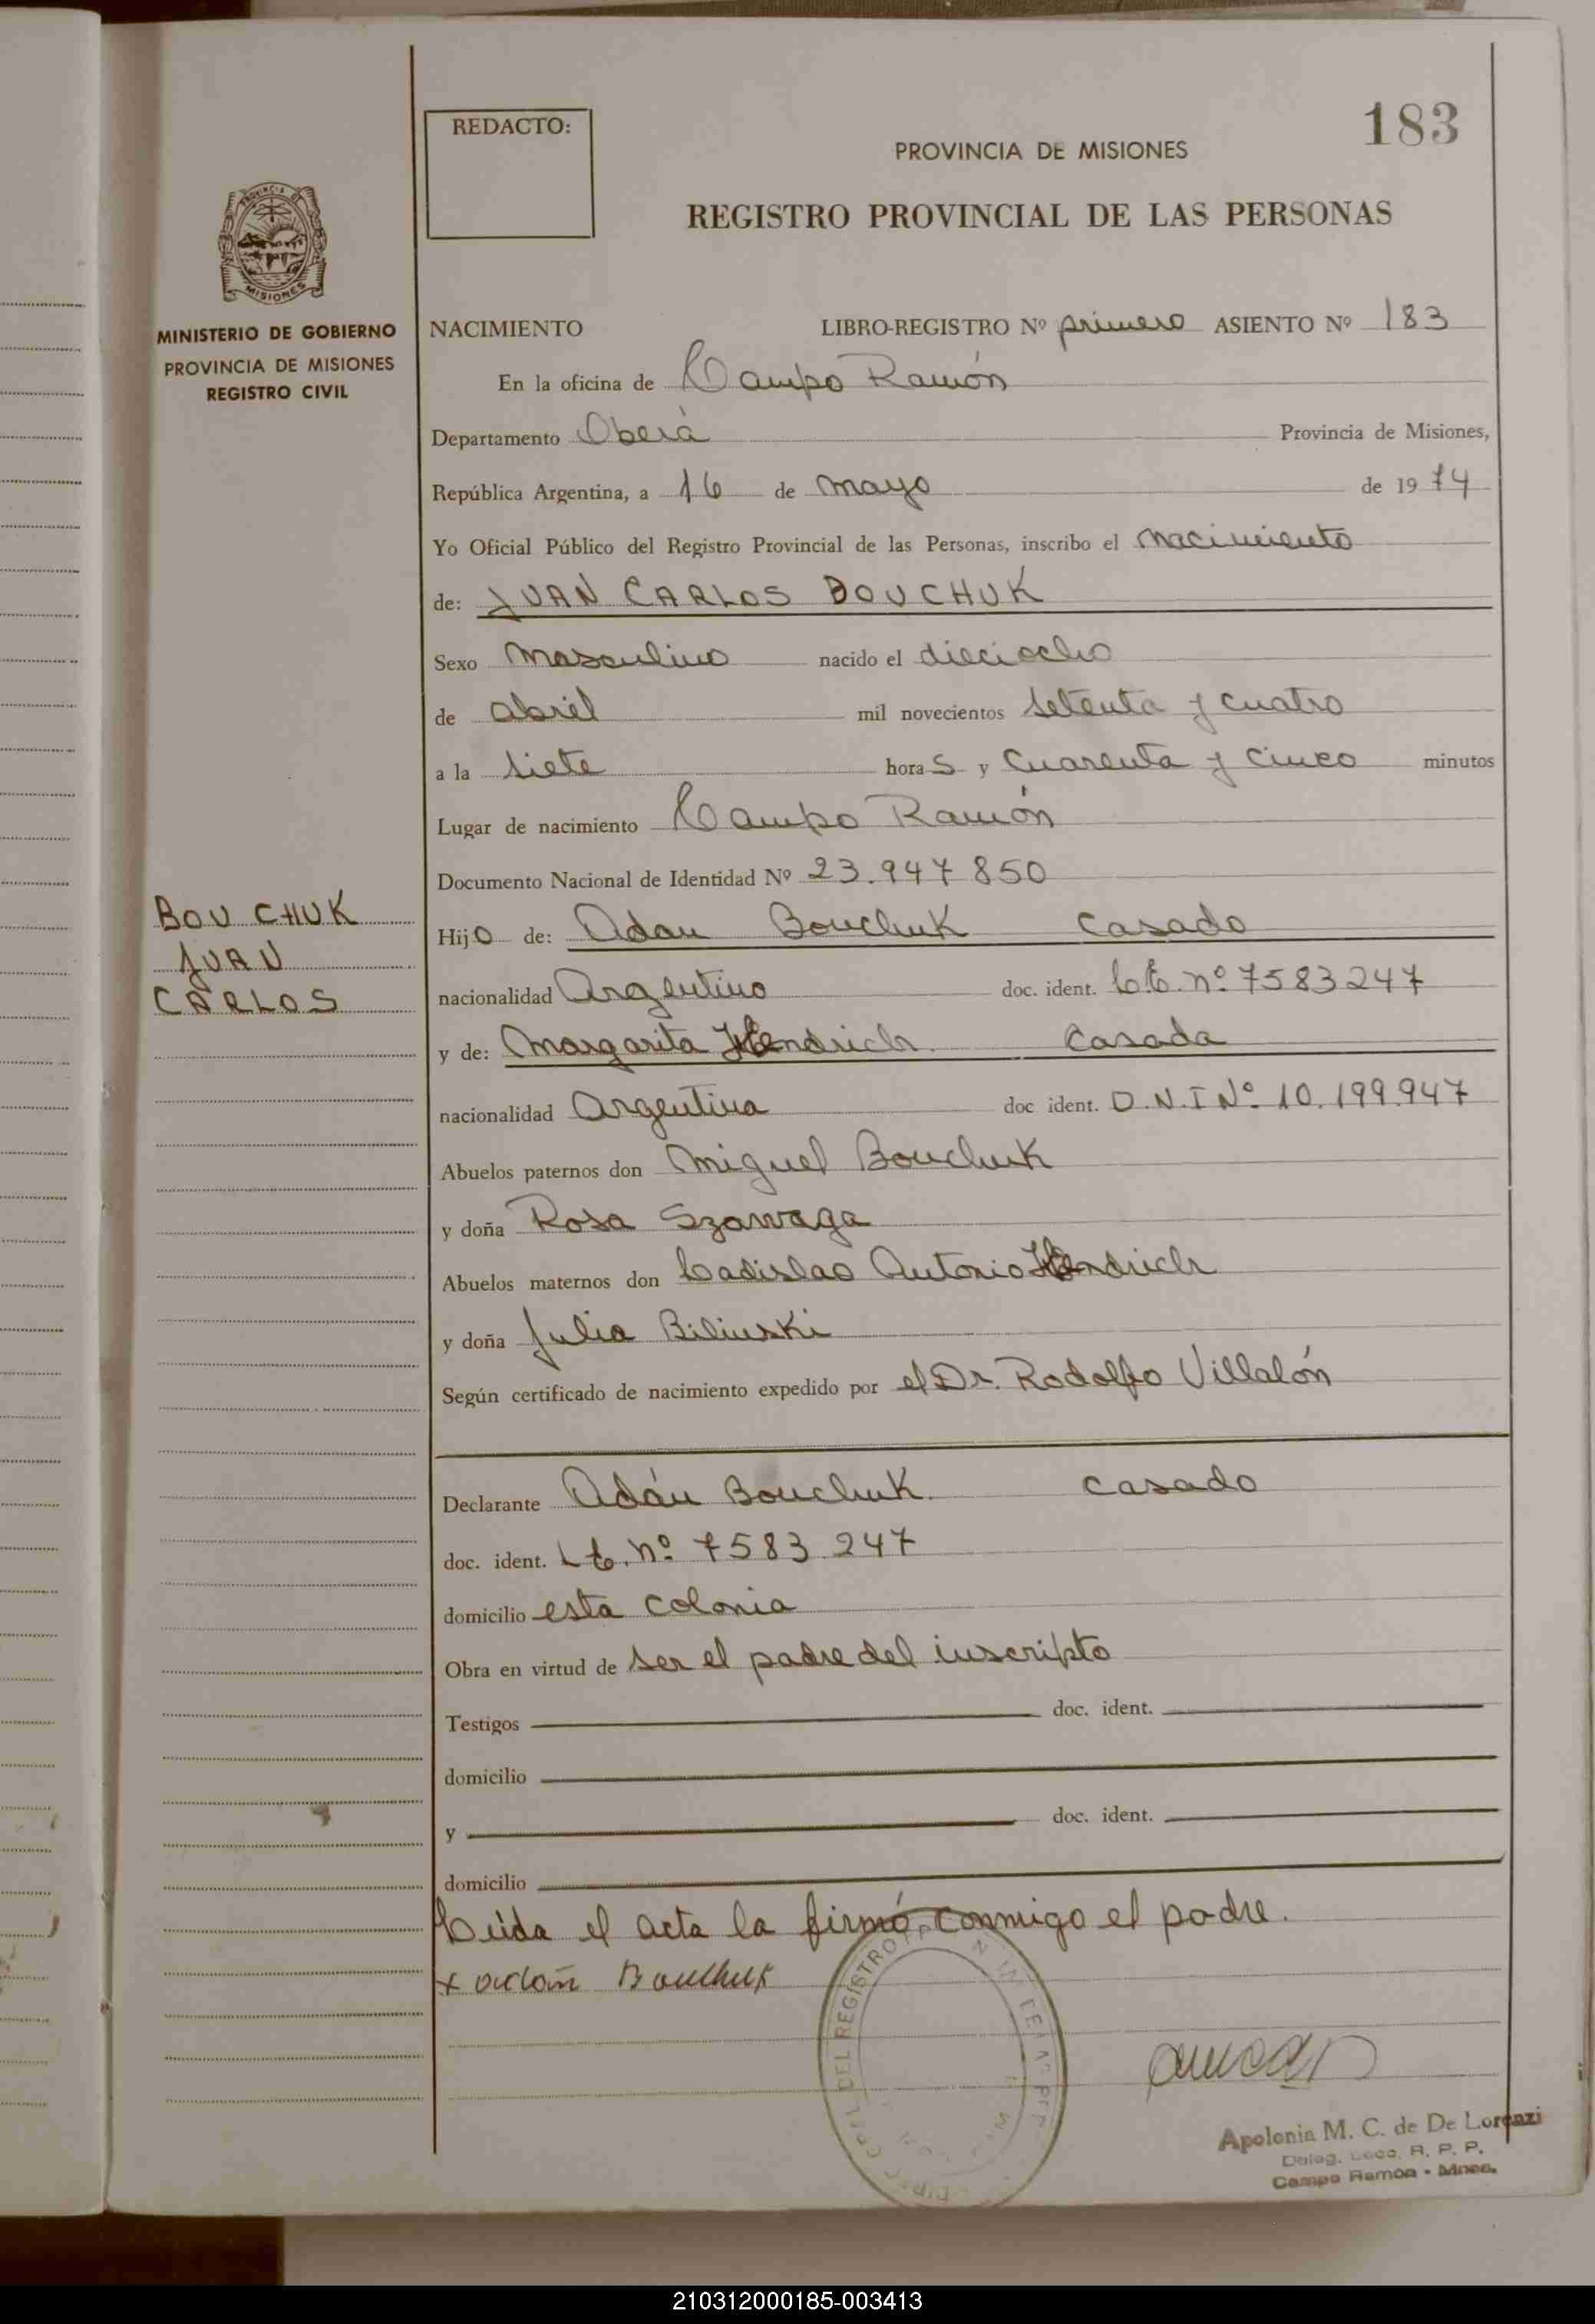 183
REDACTO:
PROVINCIA DE MISIONES
REGISTRO PROVINCIAL DE LAS PERSONAS
PROVINCIA DE
MISIONES
MINISTERIO DE GOBIERNO
PROVINCIA DE MISIONES
REGISTRO CIVIL
NACIMIENTO LIBRO-REGISTRO Nº primero ASIENTO Nº 183
En la oficina de Campo Ramón
Departamento Oberá Provincia de Misiones,
República Argentina, a 16 de mayo de 1974
Yo Oficial Público del Registro Provincial de las Personas, inscribo el nacimiento
de: JUAN CARLOS BOUCHUK
Sexo masculino nacido el dieciocho
de abril mil novecientos setenta y cuatro
a la siete horas y cuarenta y cinco minutos
Lugar de nacimiento Campo Ramón
Documento Nacional de Identidad Nº 23.947850
BOUCHUK
JUAN
CARLOS
Hijo de: Adan Bouchuk casado
nacionalidad Argentino doc. ident. nº 7583247
y de: Margarita Hendrich casada
nacionalidad Argentina doc ident. D.N.I Nº 10.199.947
Abuelos paternos don Miguel Bouchuk
y doña Rosa Szawaga
Abuelos maternos don Ladislao Antonio Hendrich
y doña Julia Biliuski
Según certificado de nacimiento expedido por el Dr. Rodolfo Villalón
Declarante Adán Bouchuk casado
doc. ident. nº 7583247
domicilio esta colonia
Obra en virtud de ser el padre del inscripto
Testigos doc. ident.
domicilio
y doc. ident.
domicilio
Leída el acta la firmó conmigo el padre.
x adán Bouchuk
DEL REGISTRO
Apolonia M. C. de De Lorenzi
Deleg. R. P. P.
Campo Ramón - Mnes.
210312000185-003413